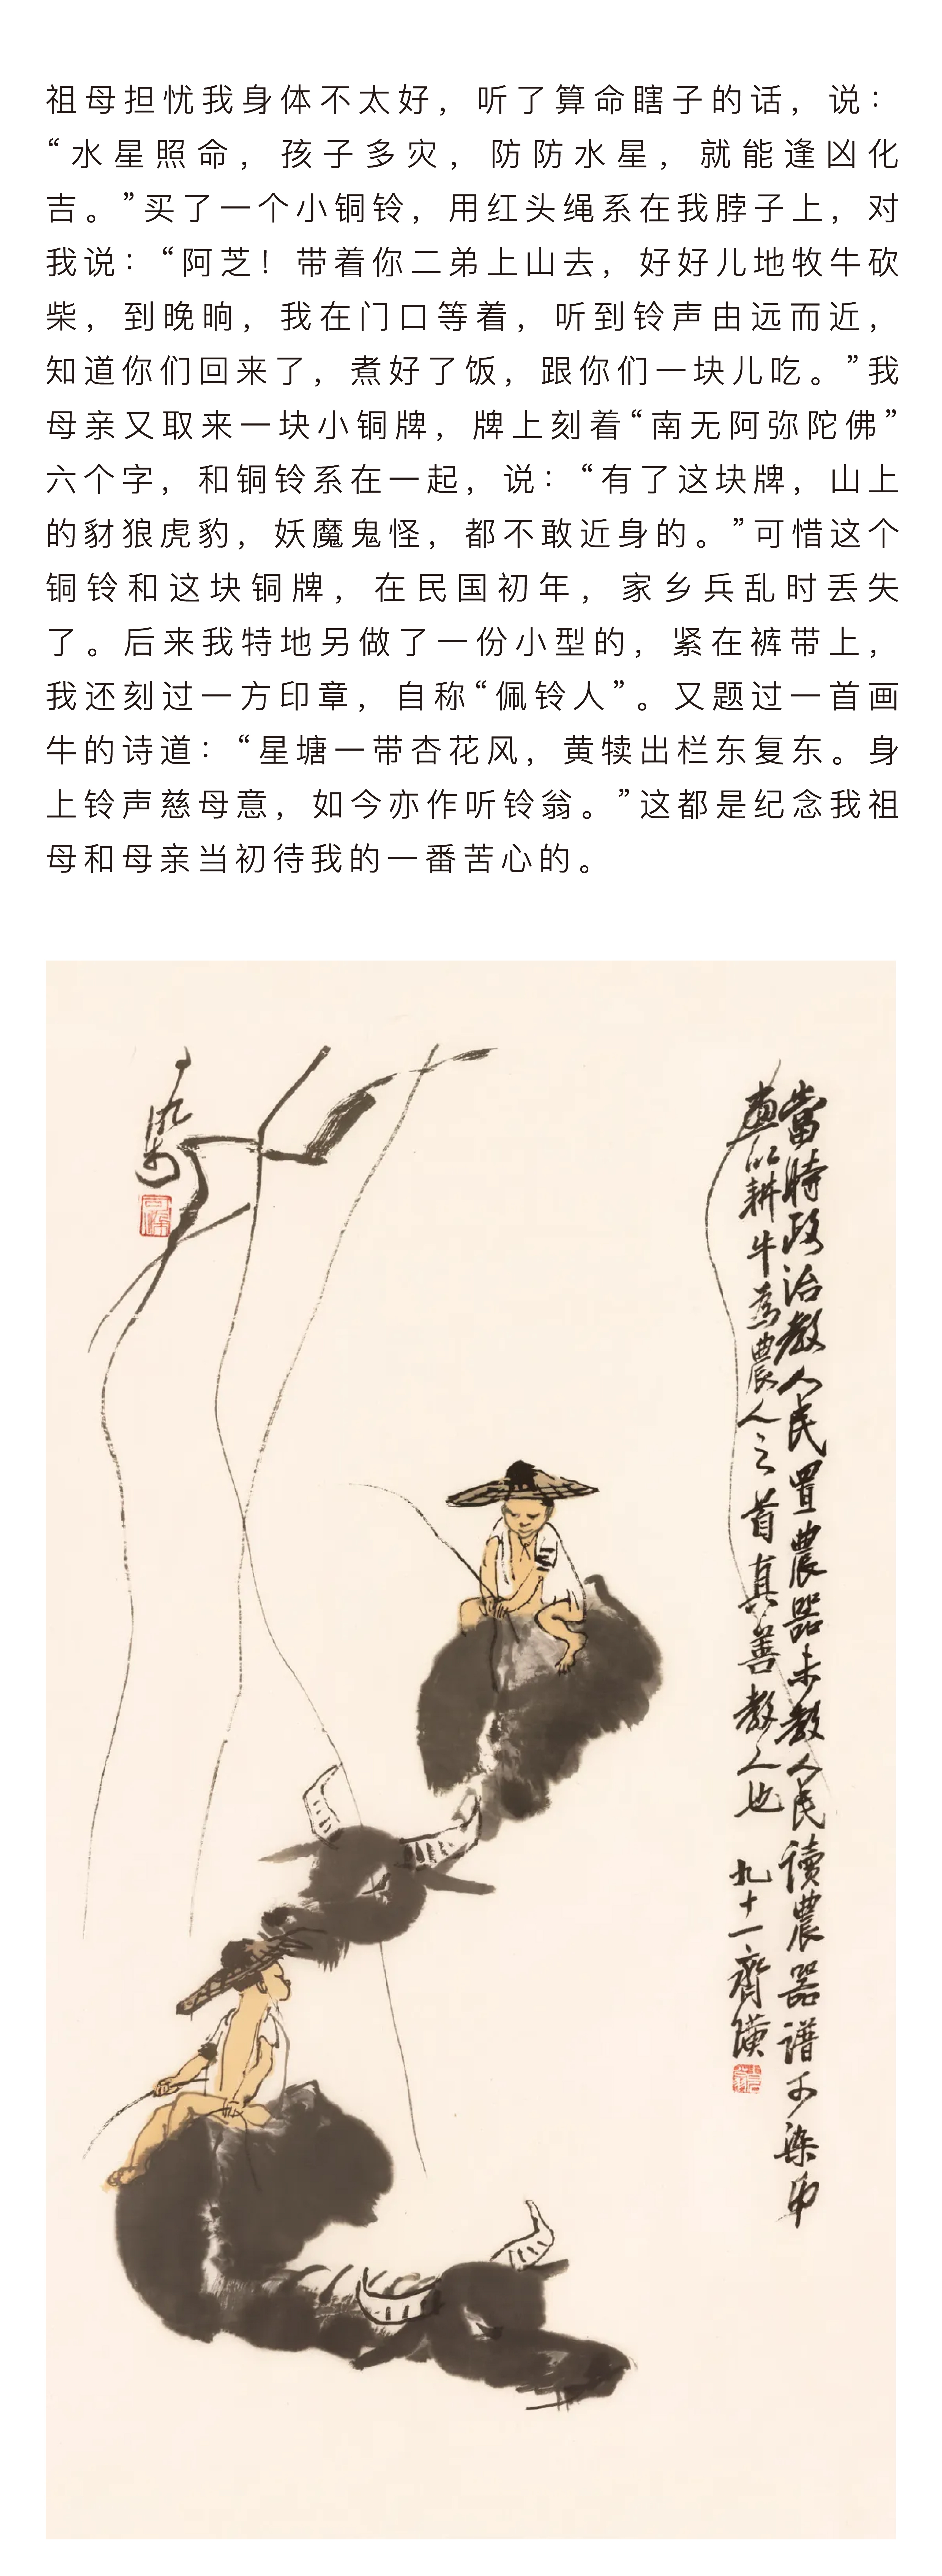 祖母担忧我身体不太好，听了算命瞎子的话，说：
“水星照命，孩子多灾，防防水星，就能逢凶化
吉。”买了一个小铜铃，用红头绳系在我脖子上，对
我说：“阿芝！带着你二弟上山去，好好儿地牧牛砍
柴，到晚晌，我在门口等着，听到铃声由远而近，
知道你们回来了，煮好了饭，跟你们一块儿吃。”我
母亲又取来一块小铜牌，牌上刻着“南无阿弥陀佛”
六个字，和铜铃系在一起，说：“有了这块牌，山上
的豺狼虎豹，妖魔鬼怪，都不敢近身的。”可惜这个
铜铃和这块铜牌，在民国初年，家乡兵乱时丢失
了。后来我特地另做了一份小型的，紧在裤带上，
我还刻过一方印章，自称“佩铃人”。又题过一首画
牛的诗道：“星塘一带杏花风，黄犊出栏东复东。身
上铃声慈母意，如今亦作听铃翁。”这都是纪念我祖
母和母亲当初待我的一番苦心的。
當時政治教人民置農器未教人民讀農器譜可染弟
畫以耕牛為農人之首真善教人也 九十一齊璜
可染